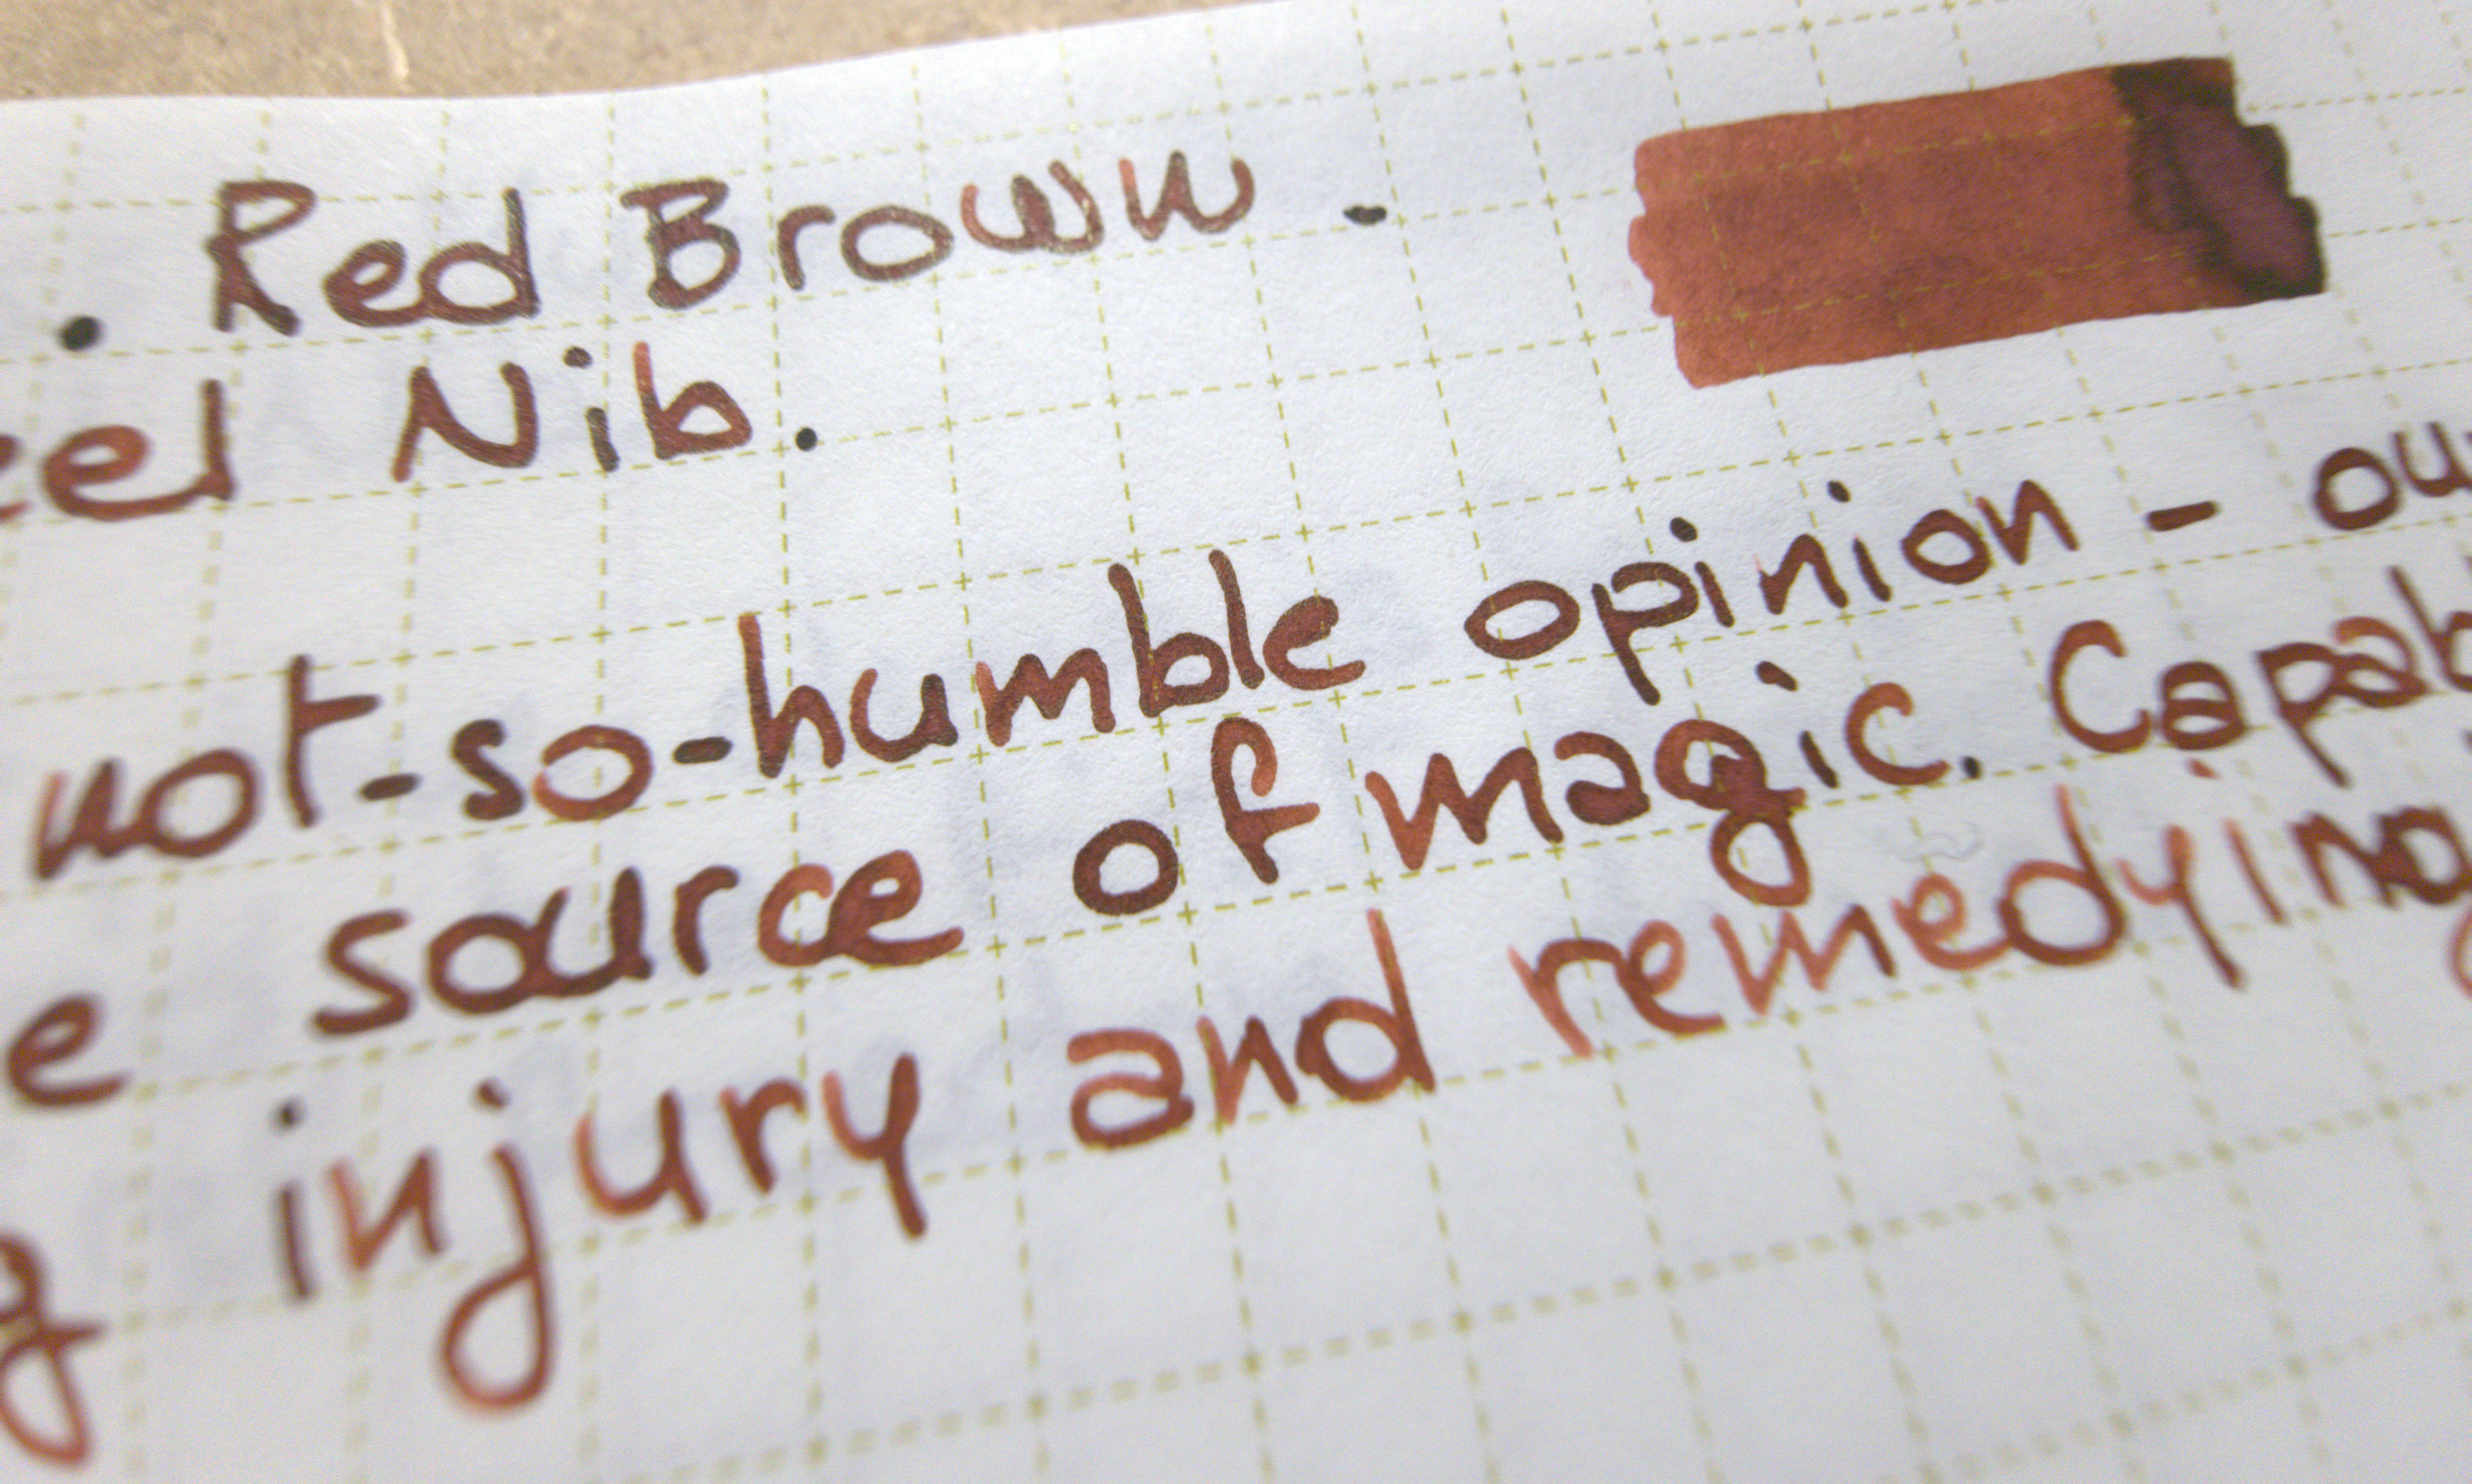 . Red Brown .
eel Nib.
not-so-humble opinion - ou
e source of magic. Capab
g injury and remedying